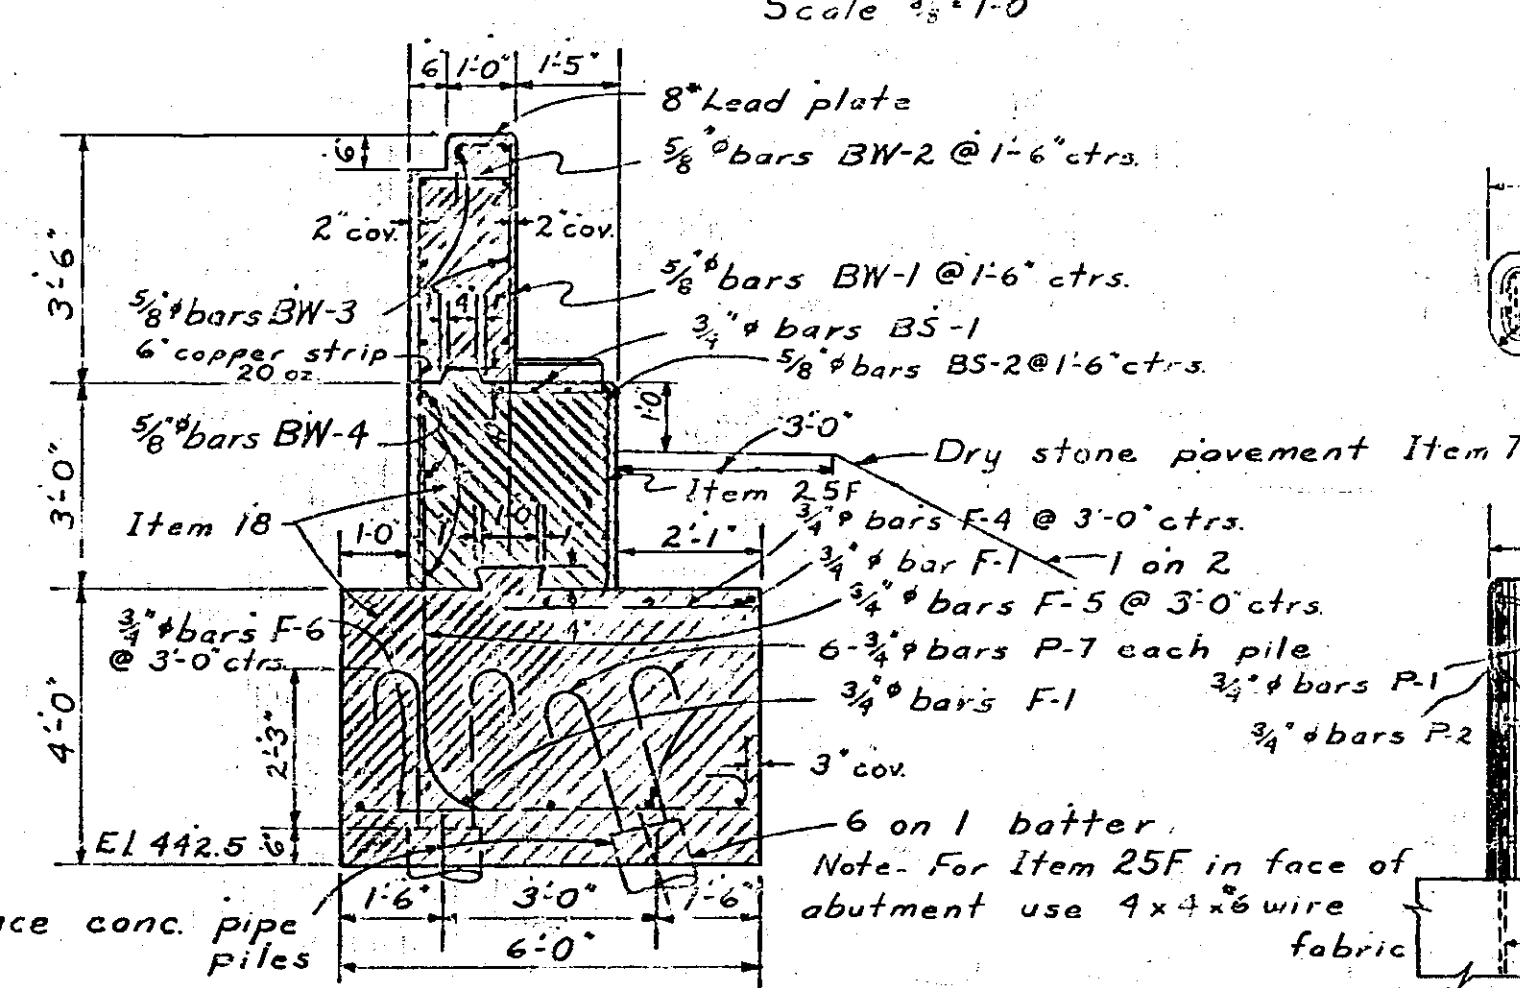 Scale 3/8"=1'-0
6 1'-0" 1'-5"
8" Lead plate
5/8"φ bars BW-2 @ 1'-6" ctrs.
6"
2" cov. 2" cov.
3'-6"
5/8"φ bars BW-1 @ 1'-6" ctrs.
5/8"φ bars BW-3
4"
3/4"φ bars BS-1
6" copper strip
20 oz.
5/8"φ bars BS-2 @ 1'-6" ctrs.
1'-0"
5/8"φ bars BW-4
3'-0"
Dry stone pavement Item 7
3'-0"
Item 25F
Item 18
1'-0" 1" 1'-0" 1" 2'-1"
3/4"φ bars F-4 @ 3'-0" ctrs.
3/4"φ bar F-1
1 on 2
3/4"φ bars F-5 @ 3'-0" ctrs.
3/4"φ bars F-6
@ 3'-0" ctrs.
4"
6-3/4"φ bars P-7 each pile
3/4"φ bars P-1
3/4"φ bars F-1
4'-0"
2'-3"
3/4"φ bars P-2
3" cov.
El 442.5 6"
6 on 1 batter
Note- For Item 25F in face of
abutment use 4x4x#6 wire
fabric
1'-6" 3'-0" 1'-6"
conc. pipe
piles
6'-0"